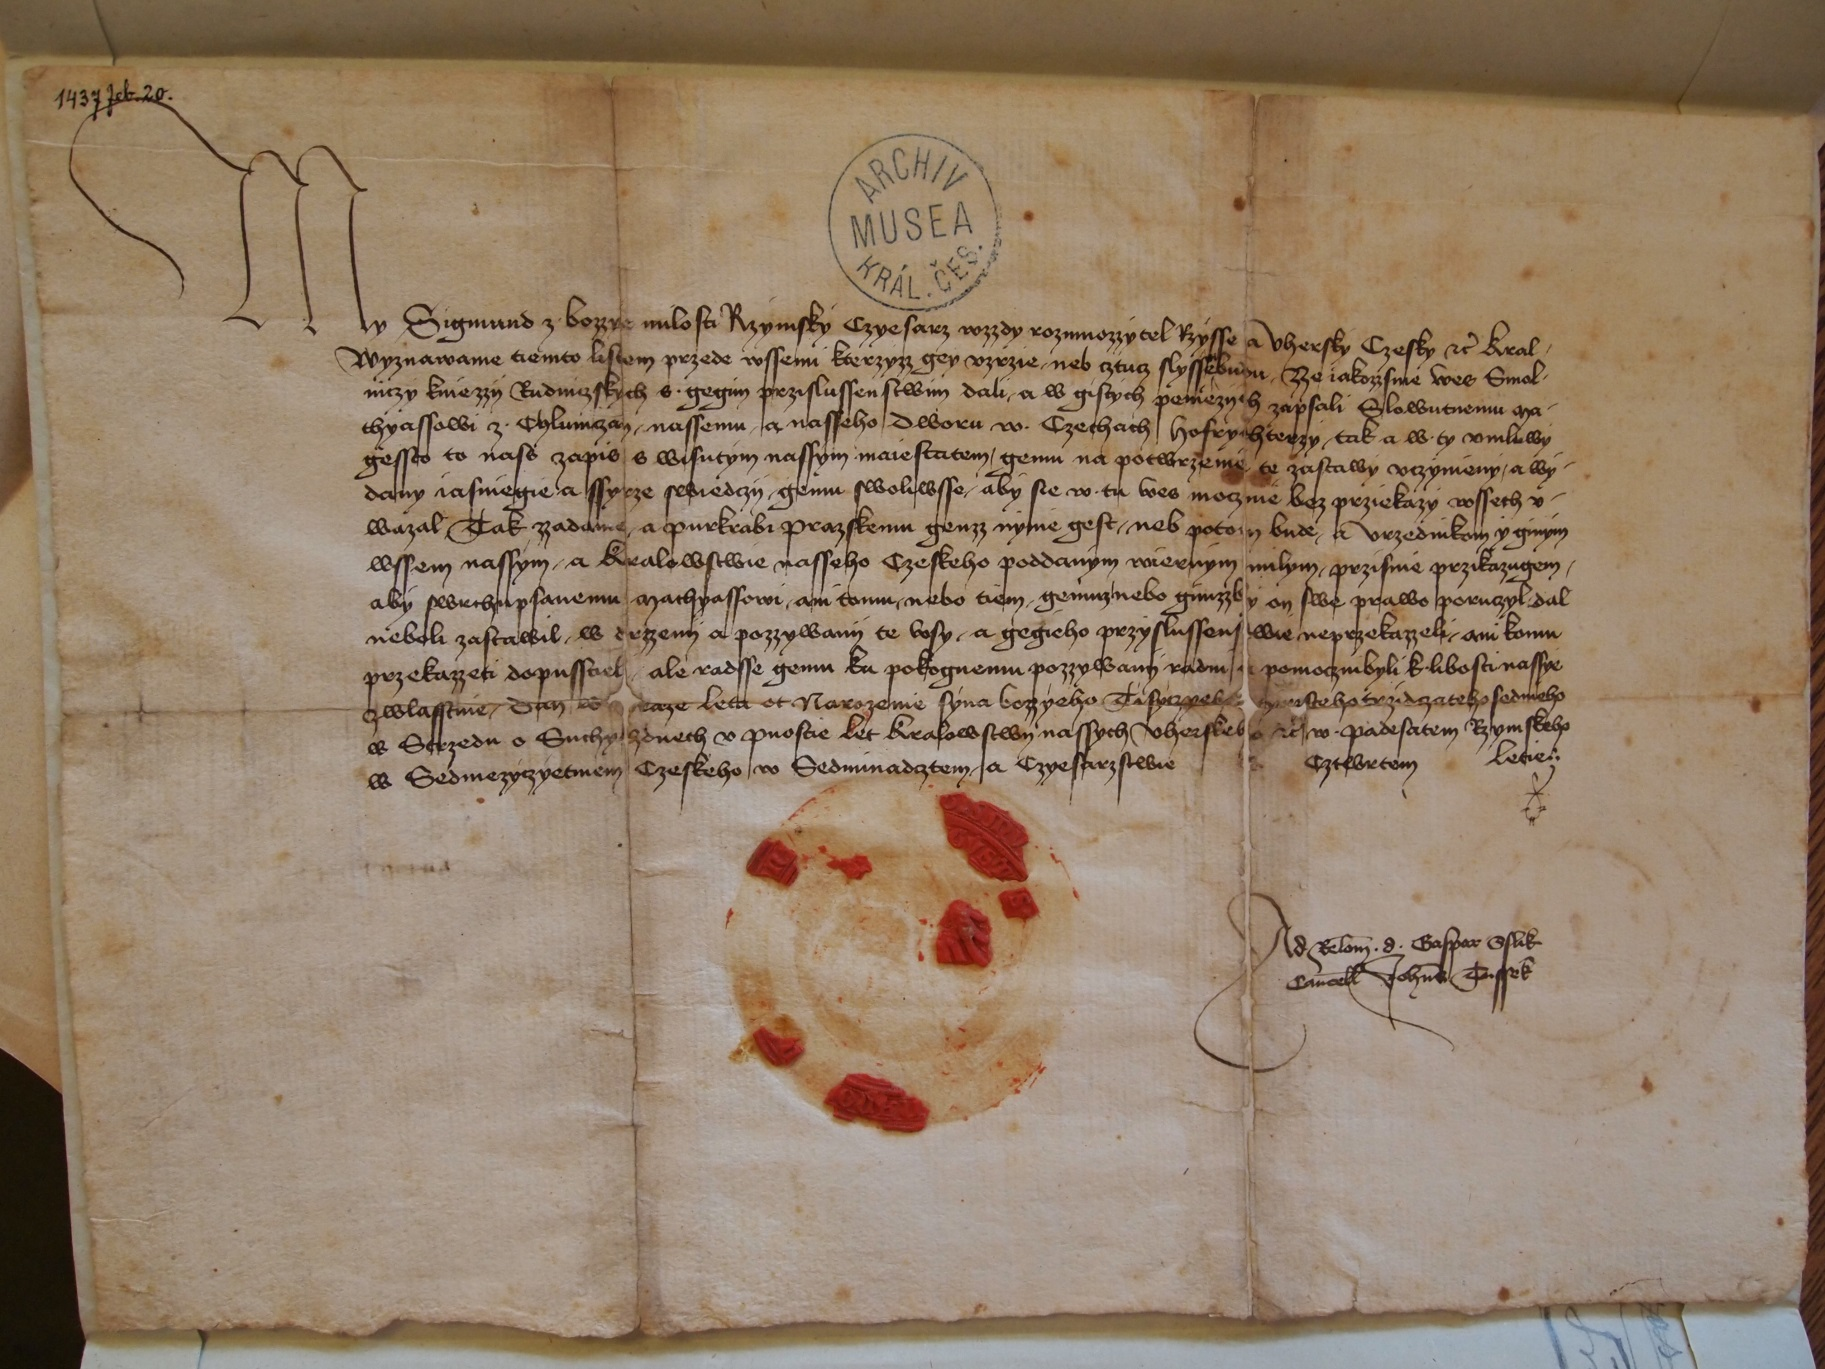 1437 Feb. 20.
ARCHIV
MUSEA
KRÁL. ČES.
My Sigmund z bozzye milosti Rzymsky Czyesarz wzzdy rozmnozzytel Rzysse a Uhersky Czesky etc Kral
Wyznawame tiemto listem przede wssemi kterzyzz gey uzrzie neb cztucz slyssebudu Zze iakozzsme wes Smol
niczy kniezzy Rudniczskych s gegim przislussenstwim dali a w gistych peniezych zapsali Slowutnemu Ma
thyassowi z Chlumczan nassemu a nasseho Dworu w Czechach Hofrychterzy tak a w ty umluwy
gessto to nass zapis s wisutym nassym maiestatem gemu na potwrzenie te zastawy uczynieny a wy
dany iasniegie a ssyrze swiedczy gemu swoliwsse aby sie w tu wes mocznie bez prziekazy wssech u
wazal Tak zzadame a purkrabi Prazskemu genzz nynie gest neb potom bude a Urzednikom y ginym
wssem nassym a Kralowstwie nasseho Czeskeho poddanym wiernym milym przisnie przikazugem
aby swrchupsanemu Mathyassowi ani tomu nebo tiem gemuznebo gimzzby on swe prawo poruczyl dal
neboli zastawil w drzzeny a pozzywany te wsy a gegieho przyslussenstwie neprzekazzeli ani komu
przekazzeti dopusstieli ale radsse gemu ku pokognemu pozzywany radni a pomoczni byli k libosti nassye
zwlasstnie Dan w Praze leta ot Narozenie syna bozzyeho Tisyczyeho cztyrsteho trzidczateho sedmeho
w Strzedu o Suchychdnech v pnostie Let Kralowstwy nassych Uherskeho etc w padesatem Rzymskeho
w Sedmezyczyetmem Czeskeho w Sedmnadcztem a Czyesarzstwie Cztwrtem letie
Ad Relom. d. Gaspar Slik
Cancell Johnes Tussek